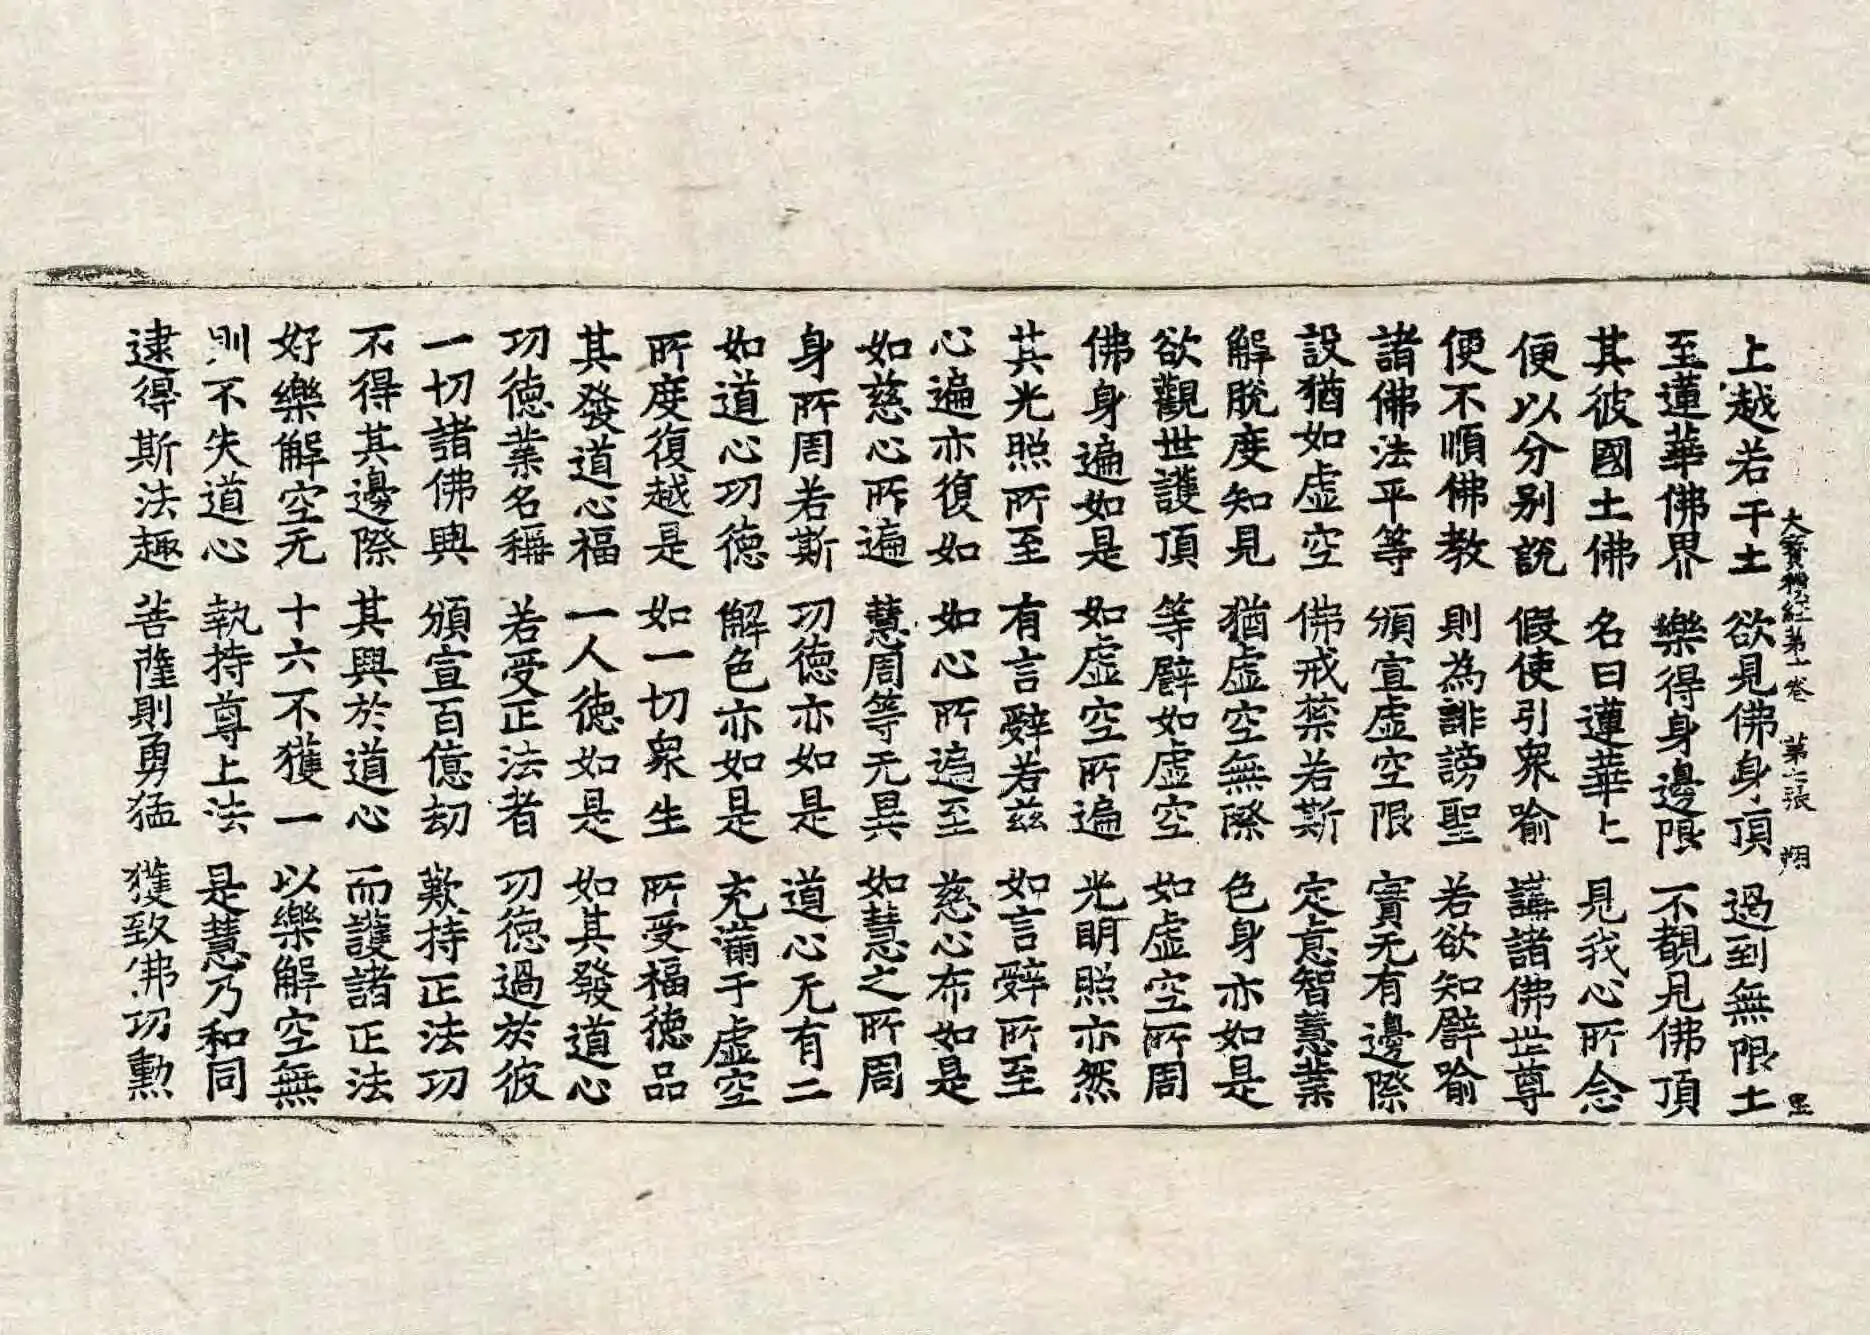 大寶積經第十卷 第六張 翔
上越若干土 欲見佛身頂 過到無限土
至蓮華佛界 樂得身邊限 不覩見佛頂
其彼國土佛 名曰蓮華上 見我心所念
便以分别說 假使引衆喻 講諸佛世尊
便不順佛教 則為誹謗聖 若欲知譬喻
諸佛法平等 頒宣虛空限 實无有邊際
設猶如虛空 佛戒禁若斯 定意智慧業
解脫度知見 猶虛空無際 色身亦如是
欲觀世護頂 等譬如虛空 如虛空所周
佛身遍如是 如虛空所遍 光明照亦然
其光照所至 有言辭若茲 如言辭所至
心遍亦復如 如心所遍至 慈心布如是
如慈心所遍 慧周等无異 如慧之所周
身所周若斯 功德亦如是 道心无有二
如道心功德 解色亦如是 充滿于虛空
所度復越是 如一切衆生 所受福德品
其發道心福 一人德如是 如其發道心
功德業名稱 若受正法者 功德過於彼
一切諸佛興 頒宣百億劫 歎持正法功
不得其邊際 其興於道心 而護諸正法
好樂解空无 十六不獲一 以樂解空無
則不失道心 執持尊上法 是慧乃和同
逮得斯法趣 菩薩則勇猛 獲致佛功勳